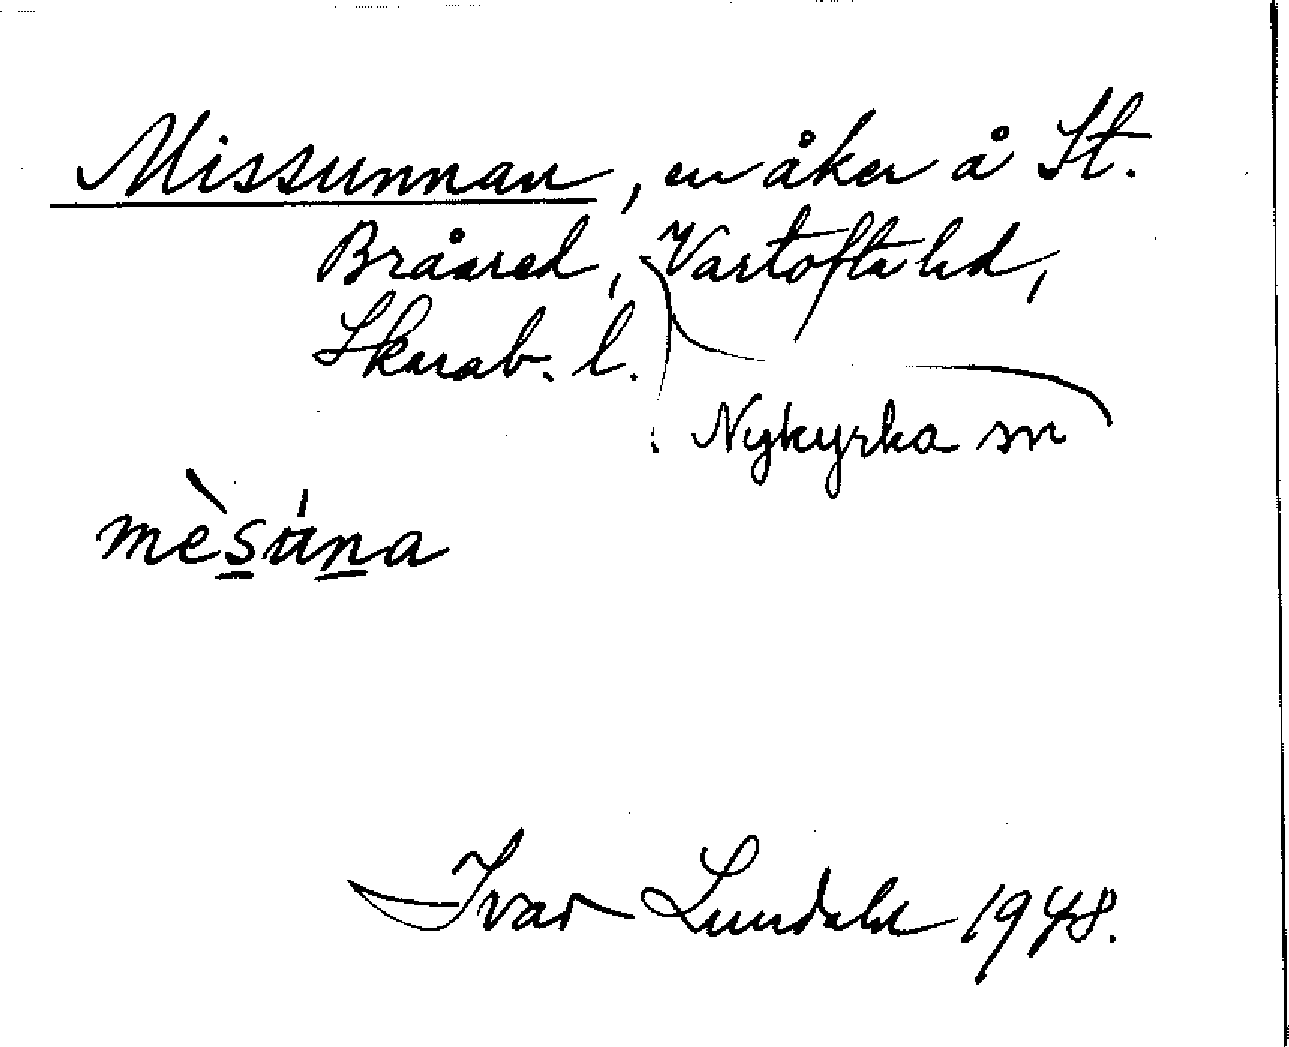 Missunnan, en åker å St.
Bråared, Vartofta hd,
Skarab. l.
Nykyrka sn
mèsu̍na
Ivar Lundahl 1948.